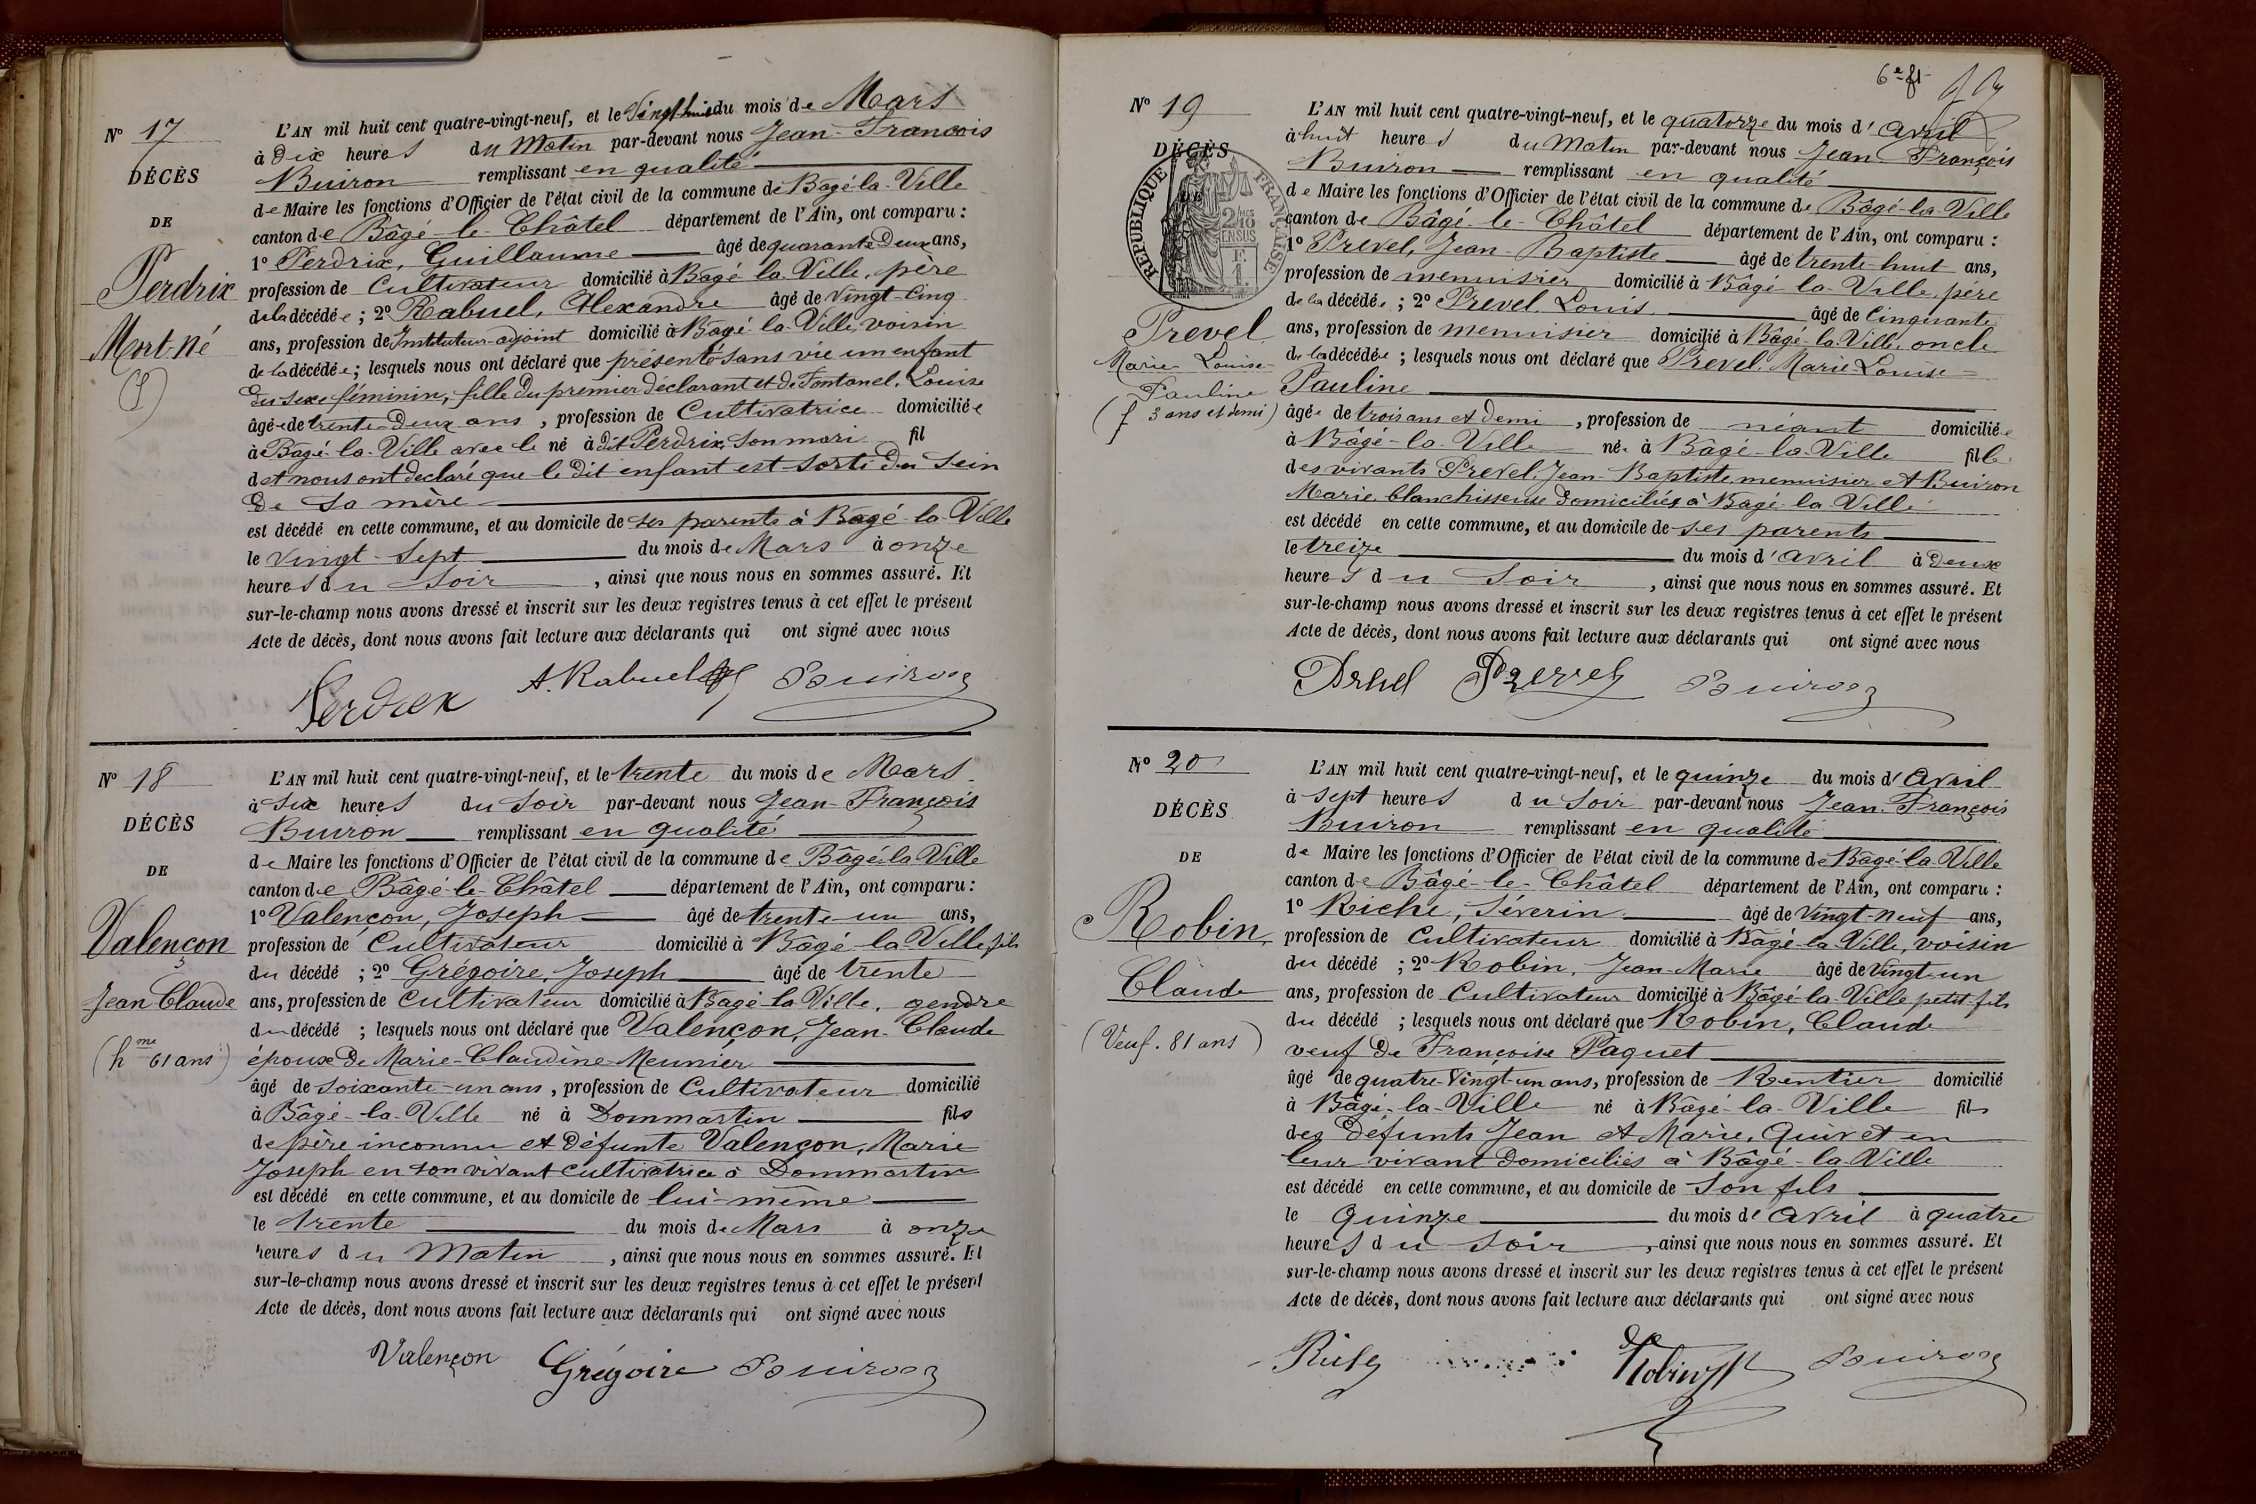 N° 17
DÉCÈS
DE
Perdrix
Mort-né
L'AN mil huit cent quatre-vingt-neuf, et le Vingt huit du mois de Mars
à Dix heures du Matin par-devant nous Jean-François
Buiron remplissant en qualité
de Maire les fonctions d'Officier de l'état civil de la commune de Bâgé-la-Ville
canton de Bâgé-le-Châtel département de l'Ain, ont comparu :
1° Perdrix, Guillaume âgé de quarante Deux ans,
profession de Cultivateur domicilié à Bâgé-la-Ville, père
de la décédée ; 2° Rabuel, Alexandre âgé de Vingt-Cinq
ans, profession de Instituteur-adjoint domicilié à Bâgé-la-Ville, voisin
de la décédée ; lesquels nous ont déclaré que présenté sans vie un enfant
du sexe féminin, fille du premier déclarant et de Fontanel, Louise
âgée de trente-Deux ans, profession de Cultivatrice domiciliée
à Bâgé-la-Ville avec le né à dit Perdrix, son mari fil
d et nous ont declaré que le dit enfant est sorti du sein
de sa mère
est décédé en cette commune, et au domicile de ses parents à Bâgé-la-Ville
le vingt-sept du mois de Mars à onze
heures du Soir, ainsi que nous nous en sommes assuré. Et
sur-le-champ nous avons dressé et inscrit sur les deux registres tenus à cet effet le présent
Acte de décès, dont nous avons fait lecture aux déclarants qui ont signé avec nous
Perdrix A. Rabuel Buiron
N° 18
DÉCÈS
DE
Valençon
Jean Claude
(hme 61 ans)
L'AN mil huit cent quatre-vingt-neuf, et le trente du mois de Mars
à Six heures du Soir par-devant nous Jean-François
Buiron remplissant en qualité
de Maire les fonctions d'Officier de l'état civil de la commune de Bâgé-la-Ville
canton de Bâgé-le-Châtel département de l'Ain, ont comparu :
1° Valençon, Joseph âgé de trente-un ans,
profession de Cultivateur domicilié à Bâgé-la-Ville, fils
du décédé ; 2° Grégoire, Joseph âgé de trente
ans, profession de Cultivateur domicilié à Bâgé-la-Ville, gendre
du décédé ; lesquels nous ont déclaré que Valençon, Jean-Claude
époux de Marie-Claudine-Meunier
âgé de soixante-un ans, profession de Cultivateur domicilié
à Bâgé-la-Ville né à Dommartin fils
de père inconnu et Défunte Valençon, Marie
Joseph en son vivant cultivatrice à Dommartin
est décédé en cette commune, et au domicile de lui-même
le trente du mois de Mars à onze
heures du Matin, ainsi que nous nous en sommes assuré. Et
sur-le-champ nous avons dressé et inscrit sur les deux registres tenus à cet effet le présent
Acte de décès, dont nous avons fait lecture aux déclarants qui ont signé avec nous
Valençon Grégoire Buiron
6e ft
N° 19
DÉCÈS
DE
RÉPUBLIQUE FRANÇAISE
Prevel
Marie-Louise-
Pauline
(f 3 ans et demi)
L'AN mil huit cent quatre-vingt-neuf, et le quatorze du mois d'avril
à huit heures du Matin par-devant nous Jean François
Buiron remplissant en qualité
de Maire les fonctions d'Officier de l'état civil de la commune de Bâgé-la-Ville
canton de Bâgé-le-Châtel département de l'Ain, ont comparu :
1° Prevel, Jean-Baptiste âgé de trente-huit ans,
profession de menuisier domicilié à Bâgé-la-Ville, père
de la décédée ; 2° Prevel Louis âgé de Cinquante
ans, profession de menuisier domicilié à Bâgé-la-Ville, oncle
de la décédée ; lesquels nous ont déclaré que Prevel, Marie-Louise
Pauline
âgée de trois ans et demi, profession de néant domiciliée
à Bâgé-la-Ville née à Bâgé-la-Ville fille
des vivants Prevel, Jean-Baptiste, menuisier et Buiron
Marie blanchisseuse domiciliés à Bâgé-la-Ville
est décédé en cette commune, et au domicile de ses parents
le treize du mois d'avril à Deux
heures du Soir, ainsi que nous nous en sommes assuré. Et
sur-le-champ nous avons dressé et inscrit sur les deux registres tenus à cet effet le présent
Acte de décès, dont nous avons fait lecture aux déclarants qui ont signé avec nous
Prevel Prevel Buiron
N° 20
DÉCÈS
DE
Robin,
Claude
(Veuf. 81 ans)
L'AN mil huit cent quatre-vingt-neuf, et le quinze du mois d'avril
à sept heures du Soir par-devant nous Jean-François
Buiron remplissant en qualité
de Maire les fonctions d'Officier de l'état civil de la commune de Bâgé-la-Ville
canton de Bâgé-le-Châtel département de l'Ain, ont comparu :
1° Riche, Séverin âgé de Vingt-neuf ans,
profession de Cultivateur domicilié à Bâgé-la-Ville, voisin
du décédé ; 2° Robin, Jean-Marie âgé de Vingt-un
ans, profession de Cultivateur domicilié à Bâgé-la-Ville petit-fils
du décédé ; lesquels nous ont déclaré que Robin, Claude
veuf de Françoise Paquet
âgé de quatre-vingt-un ans, profession de Rentier domicilié
à Bâgé-la-Ville né à Bâgé-la-Ville fils
des Défunts Jean et Marie, Quivet en
leur vivant domiciliés à Bâgé-la-Ville
est décédé en cette commune, et au domicile de son fils
le Quinze du mois d'Avril à quatre
heures du soir, ainsi que nous nous en sommes assuré. Et
sur-le-champ nous avons dressé et inscrit sur les deux registres tenus à cet effet le présent
Acte de décès, dont nous avons fait lecture aux déclarants qui ont signé avec nous
Robin Buiron